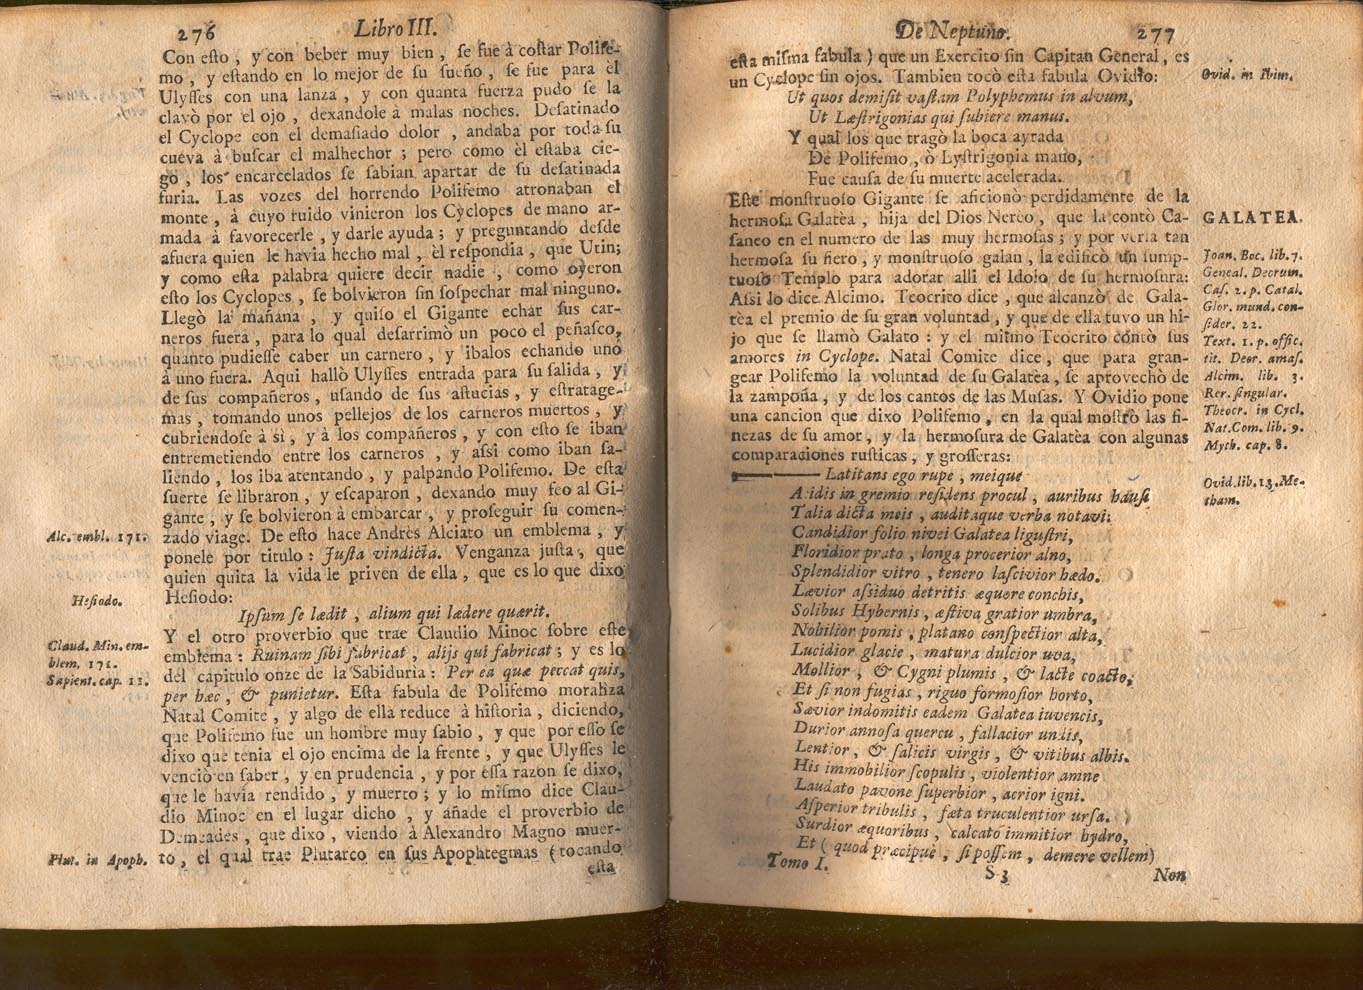 276 Libro III.
Con eſto , y con beber muy bien , ſe fue à coſtar Polife-
mo , y eſtando en lo mejor de ſu ſueño , ſe fue para èl
Ulyſſes con una lanza , y con quanta fuerza pudo ſe la
clavò por el ojo , dexandole à malas noches. Deſatinado
el Cyclope con el demaſiado dolor , andaba por toda ſu
cueva à buſcar el malhechor ; pero como èl eſtaba cie-
go , los encarcelados ſe ſabian apartar de ſu deſatinada
furia. Las vozes del horrendo Polifemo atronaban el
monte , à cuyo ruido vinieron los Cyclopes de mano ar-
mada à favorecerle , y darle ayuda ; y preguntando deſde
afuera quien le havia hecho mal , èl reſpondia , que Utin;
y como eſta palabra quiere decir nadie , como oyeron
eſto los Cyclopes , ſe bolvieron ſin ſoſpechar mal ninguno.
Llegò la mañana , y quiſo el Gigante echar ſus car-
neros fuera , para lo qual deſarrimò un poco el peñaſco,
quanto pudieſſe caber un carnero , y ibalos echando uno
à uno fuera. Aqui hallò Ulyſſes entrada para ſu ſalida , y
de ſus compañeros , uſando de ſus aſtucias , y eſtratage-
mas , tomando unos pellejos de los carneros muertos , y
cubriendoſe à sì , y à los compañeros , y con eſto ſe iban
entremetiendo entre los carneros , y aſsi como iban ſa-
liendo , los iba atentando , y palpando Polifemo. De eſta
ſuerte ſe libraron , y eſcaparon , dexando muy feo al Gi-
gante , y ſe bolvieron à embarcar , y proſeguir ſu comen-
Alc. embl. 171. zado viage. De eſto hace Andrès Alciato un emblema , y
ponele por titulo : Juſta vindicta. Venganza juſta , que
quien quita la vida le priven de ella , que es lo que dixo
Heſiodo. Heſiodo:
Ipſum ſe lædit , alium qui lædere quærit.
Y el otro proverbio que trae Claudio Minoc ſobre eſte
Claud. Min. em- emblema : Ruinam ſibi fabricat , alijs qui fabricat ; y es lo
blem. 171. del capitulo onze de la Sabiduria : Per ea quæ peccat quis,
Sapient. cap. 11. per hæc , & punietur. Eſta fabula de Polifemo moraliza
Natal Comite , y algo de ella reduce à hiſtoria , diciendo,
que Polifemo fue un hombre muy ſabio , y que por eſſo ſe
dixo que tenia el ojo encima de la frente , y que Ulyſſes le
venciò en ſaber , y en prudencia , y por eſſa razon ſe dixo,
que le havia rendido , y muerto ; y lo miſmo dice Clau-
dio Minoe en el lugar dicho , y añade el proverbio de
Demeades , que dixo , viendo à Alexandro Magno muer-
Plut. in Apoph. to , el qual trae Plutarco en ſus Apophtegmas (tocando
eſta
De Neptuno. 277
eſta miſma fabula) que un Exercito ſin Capitan General, es
un Cyclope ſin ojos. Tambien tocò eſta fabula Ovidio: Ovid. in Ibim.
Ut quos demiſit vaſtam Polyphemus in alvum,
Ut Læſtrigonias qui ſubiere manus.
Y qual los que tragò la boca ayrada
De Polifemo , ò Lyſtrigonia mano,
Fue cauſa de ſu muerte acelerada.
Eſte monſtruoſo Gigante ſe aficionò perdidamente de la
hermoſa Galatèa , hija del Dios Nereo , que la contò Ca- GALATEA.
ſaneo en el numero de las muy hermoſas ; y por verla tan
hermoſa ſu fiero , y monſtruoſo galan , la edificò un ſump- Joan. Boc. lib. 7.
tuoſo Templo para adorar alli el Idolo de ſu hermoſura: Geneal. Deorum.
Aſsi lo dice Alcimo. Teocrito dice , que alcanzò de Gala- Caſ. 2. p. Catal.
tèa el premio de ſu gran voluntad , y que de ella tuvo un hi- Glor. mund. con-
ſider. 22.
jo que ſe llamò Galato : y el miſmo Teocrito contò ſus Text. 1. p. offic.
amores in Cyclope. Natal Comite dice , que para gran- tit. Deor. amaſ.
gear Polifemo la voluntad de ſu Galatèa , ſe aprovechò de Alcim. lib. 3.
la zampoña , y de los cantos de las Muſas. Y Ovidio pone Rer. ſingular.
una cancion que dixo Polifemo , en la qual moſtrò las fi- Theocr. in Cycl.
nezas de ſu amor , y la hermoſura de Galatèa con algunas Nat. Com. lib. 9.
comparaciones ruſticas , y groſſeras: Myth. cap. 8.
Latitans ego rupe , meique Ovid. lib. 13. Me-
Acidis in gremio reſidens procul , auribus hauſi tham.
Talia dicta meis , auditaque verba notavi:
Candidior folio nivei Galatea liguſtri,
Floridior prato , longa procerior alno,
Splendidior vitro , tenero laſcivior hædo.
Lævior aſsiduo detritis æquore conchis,
Solibus Hybernis , æſtiva gratior umbra,
Nobilior pomis , platano conſpectior alta,
Lucidior glacie , matura dulcior uva,
Mollior , & Cygni plumis , & lacte coacto,
Et ſi non fugias , riguo formoſior horto,
Sævior indomitis eadem Galatea iuvencis,
Durior annoſa quercu , fallacior undis,
Lentior , & ſalicis virgis , & vitibus albis.
His immobilior ſcopulis , violentior amne
Laudato pavone ſuperbior , acrior igni.
Aſperior tribulis , fæta truculentior urſa.
Surdior æquoribus , calcato immitior hydro,
Et (quod præcipuè , ſi poſſem , demere vellem)
Tomo I. S 3 Non